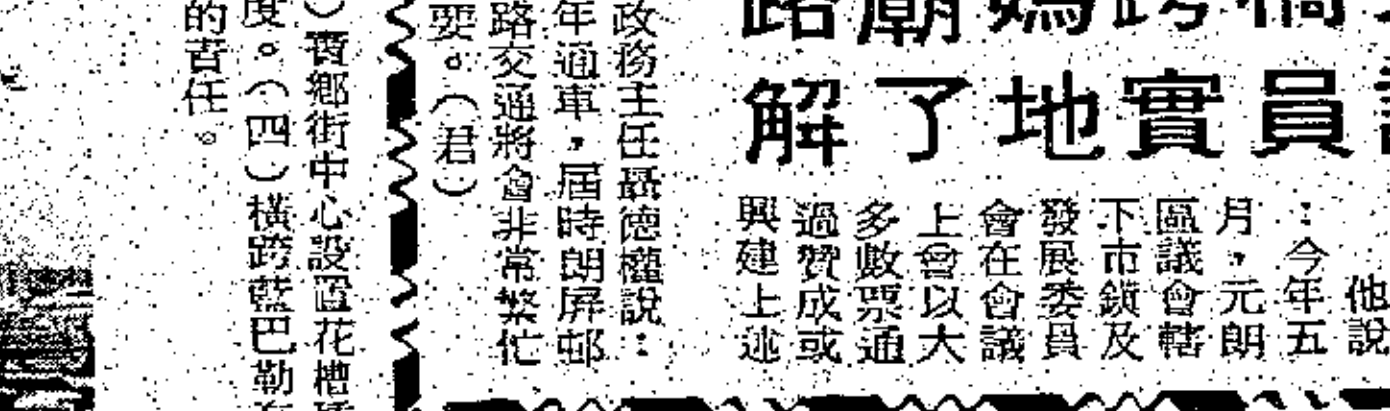 路廟媽跨橋
解了地實員
他說
：今年五
月，元朗
區議會轄
下市鎮及
發展委員
會在會議
上會以大
多數票通
過贊成或
興建上述
政務主任聶德權說：
年通車，屆時朗屏邨
路交通將會非常繁忙
要。（君）
）寶鄉街中心設置花槽
度。（四）橫跨藍巴勒
的責任。